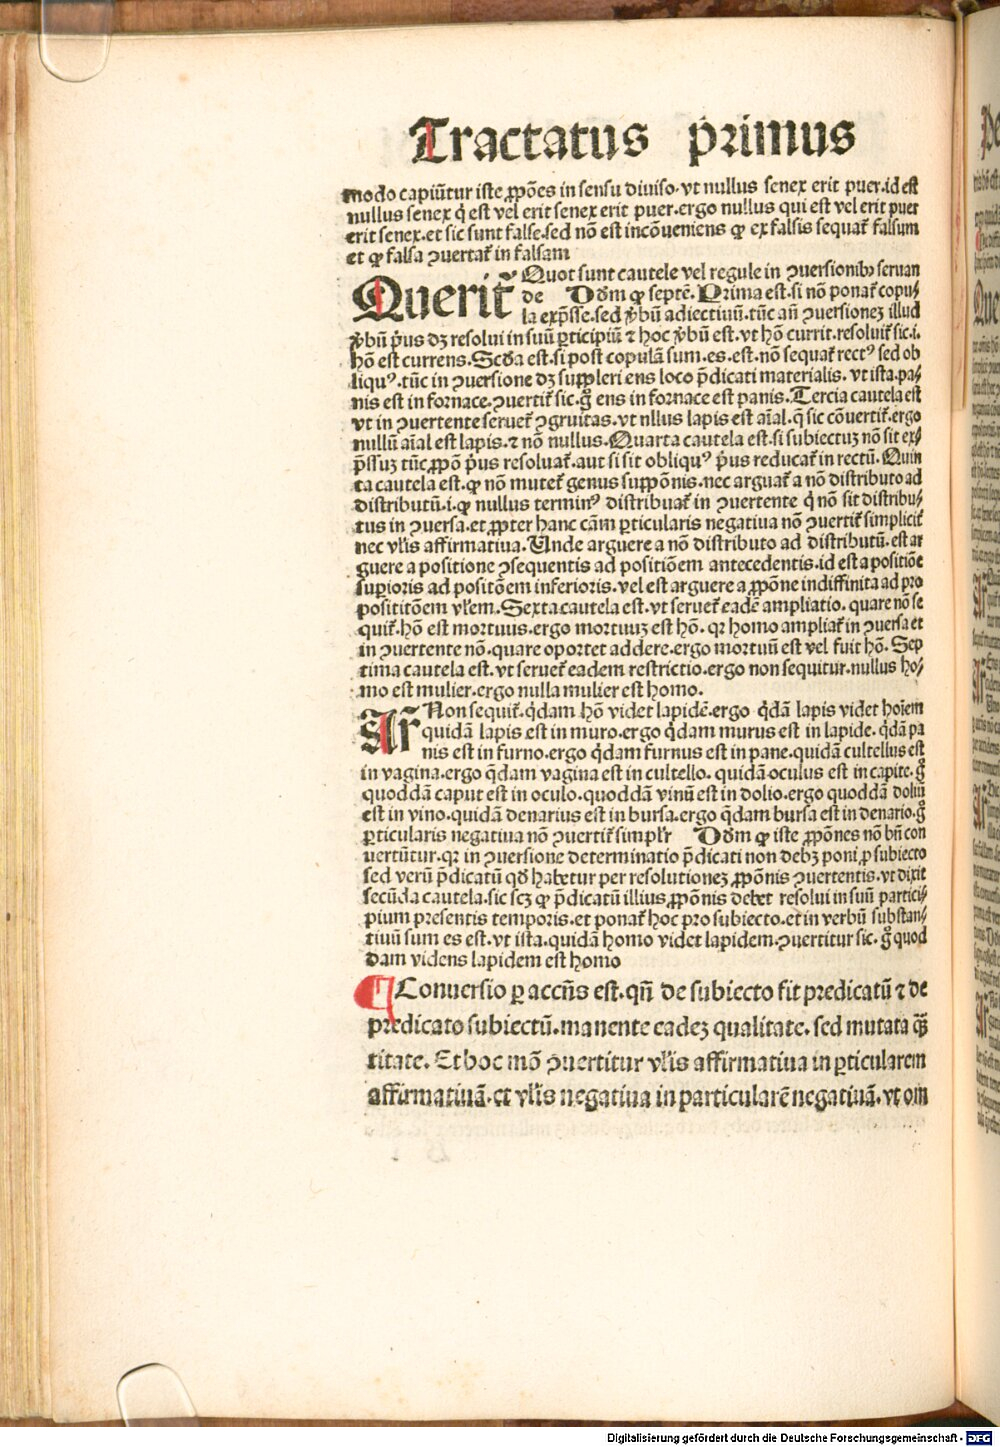 Tractatus primus
modo capiūtur iste ꝓpōes in sensu diuiso. vt nullus senex erit puer. id est
nullus senex q̇ est vel erit senex erit puer. ergo nullus qui est vel erit puer
erit senex. et sic sunt false. sed nō est incōueniens ꝙ ex falsis sequat̄ falsum
et ꝙ falsa ꝯuertat̄ in falsam
Querit̄ Quot sunt cautele vel regule in ꝯuersionibꝰ seruan
de Dd̄m ꝙ septē. Prima est. si nō ponat̄ copu⸗
la exp̄sse. sed v̄bū adiectiuū. tūc an̄ ꝯuersionez illud
v̄bū p̄us dꝫ resolui in suū ꝑticipiū ⁊ hoc v̄bū est. vt hō currit. resoluit̄ sic. i.
hō est currens. Scd̄a est. si post copulā sum. es. est. nō sequat̄ rectꝰ sed ob
liquꝰ. tūc in ꝯuersione dꝫ suppleri ens loco p̄dicati materialis. vt ista. pa⸗
nis est in fornace. ꝯuertit̄ sic. g̊ ens in fornace est panis. Tercia cautela est
vt in ꝯuertente seruet̄ ꝯgruitas. vt nllus lapis est aīal. q̄ sic cōuertit̄. ergo
nullū aīal est lapis. ⁊ nō nullus. Quarta cautela est. si subiectuꝫ nō sit ex⸗
p̄ssuꝫ tūc ꝓpō p̄us resoluat̄. aut si sit obliquꝰ p̄us reducat̄ in rectū. Quin
ta cautela est. ꝙ nō mutet̄ genus suppōnis. nec arguat̄ a nō distributo ad
distributū. i. ꝙ nullus terminꝰ distribuat̄ in ꝯuertente q̇ nō sit distribu⸗
tus in ꝯuersa. et ꝓpter hanc cām ꝑticularis negatiua nō ꝯuertit̄ simplicit̄
nec vl̄is affirmatiua. Unde arguere a nō distributo ad distributū. est ar
guere a positione ꝯsequentis ad positiōem antecedentis. id est a positiōe
supioris ad positōem inferioris. vel est arguere a ꝓpōne indiffinita ad pro
posititōem vl̄em. Sexta cautela est. vt seruet̄ eadē ampliatio. quare nō se
quit̄. hō est mortuus. ergo mortuuꝫ est hō. qꝛ homo ampliat̄ in ꝯuersa et
in ꝯuertente nō. quare oportet addere. ergo mortuū est vel fuit hō. Sep
tima cautela est. vt seruet̄ eadem restrictio. ergo non sequitur. nullus ho⸗
mo est mulier. ergo nulla mulier est homo.
Ar̄ Non sequit̄. q̇dam hō videt lapidē. ergo q̇dā lapis videt hoīem
quidā lapis est in muro. ergo q̇dam murus est in lapide. q̇dā pa
nis est in furno. ergo q̇dam furnus est in pane. quidā cultellus est
in vagina. ergo q̇dam vagina est in cultello. quidā oculus est in capite. g̊
quoddā caput est in oculo. quoddā vinū est in dolio. ergo quoddā doliū
est in vino. quidā denarius est in bursa. ergo q̇dam bursa est in denario. g̊
ꝑticularis negatiua nō ꝯuertit̄ simpl̄r Dd̄m ꝙ iste ꝓpōnes nō bn̄ con
uertūtur. qꝛ in ꝯuersione determinatio p̄dicati non debꝫ poni ꝓ subiecto
sed verū p̄dicatū qd̄ habetur per resolutioneꝫ ꝓpōnis ꝯuertentis. vt dixit
secūda cautela. sic scꝫ ꝙ p̄dicatū illius ꝓpōnis debet resolui in suū partici⸗
pium presentis temporis. et ponat̄ hoc pro subiecto. et in verbū substan⸗
tiuū sum es est. vt ista. quidā homo videt lapidem. ꝯuertitur sic. g̊ quod
dam videns lapidem est homo
¶ Conuersio ꝑ accn̄s est. qn̄ de subiecto fit predicatū ⁊ de
predicato subiectū. manente eadeꝫ qualitate. sed mutata q̄ꝫ
titate. Et hoc mō ꝯuertitur vl̄is affirmatiua in ꝑticularem
affirmatiuā. et vl̄is negatiua in particularē negatiuā. vt om
Digitalisierung gefördert durch die Deutsche Forschungsgemeinschaft - DFG